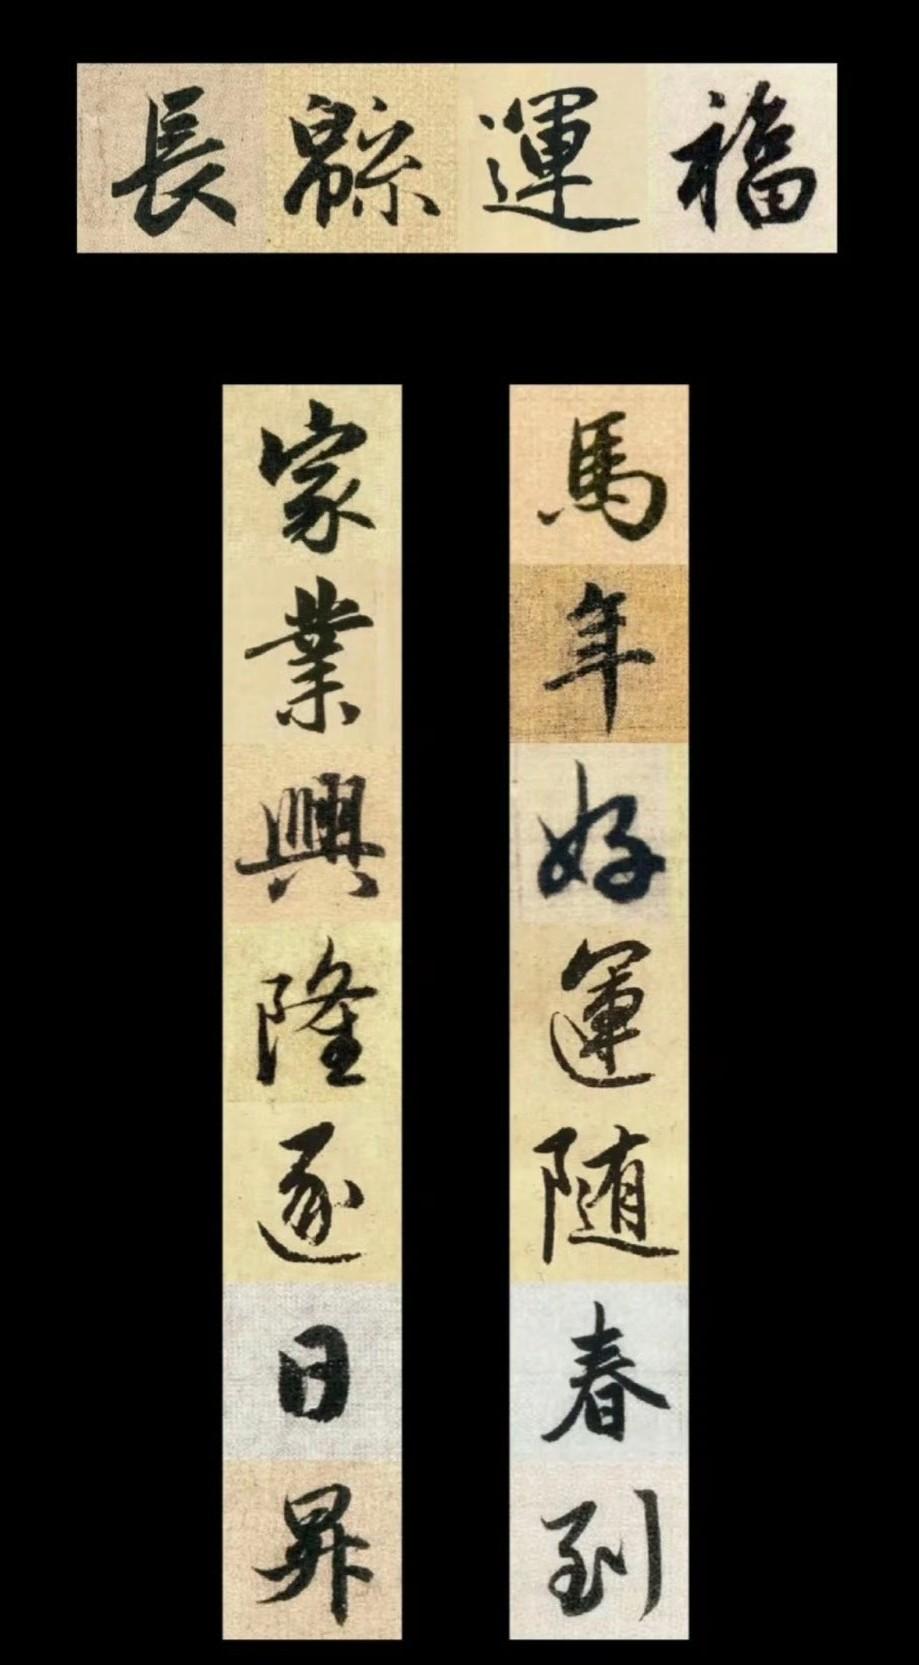 福運緜長
馬年好運随春到
家業興隆逐日昇